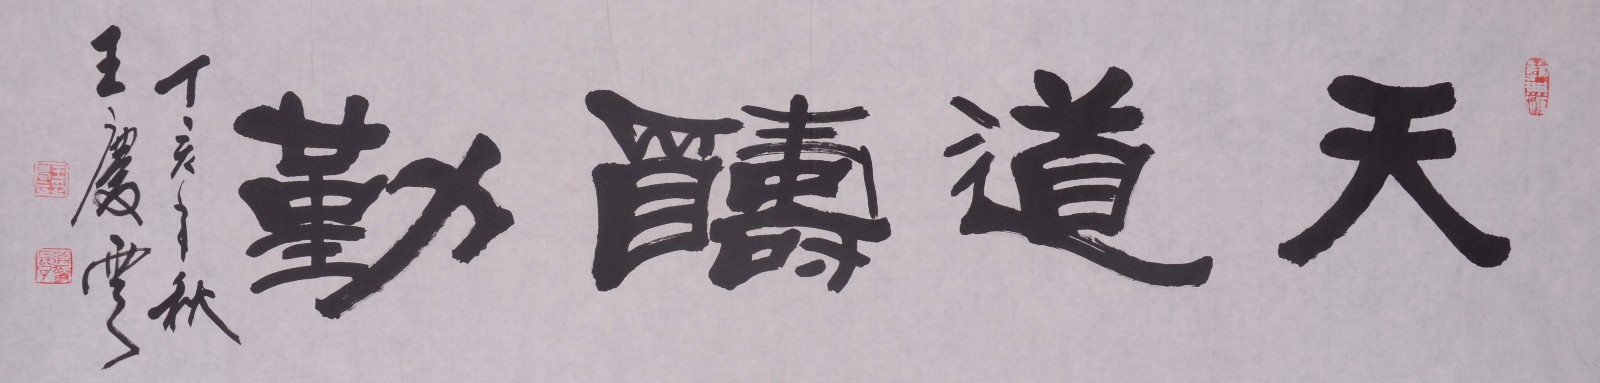 天道醻勤
丁亥年秋
王慶雲